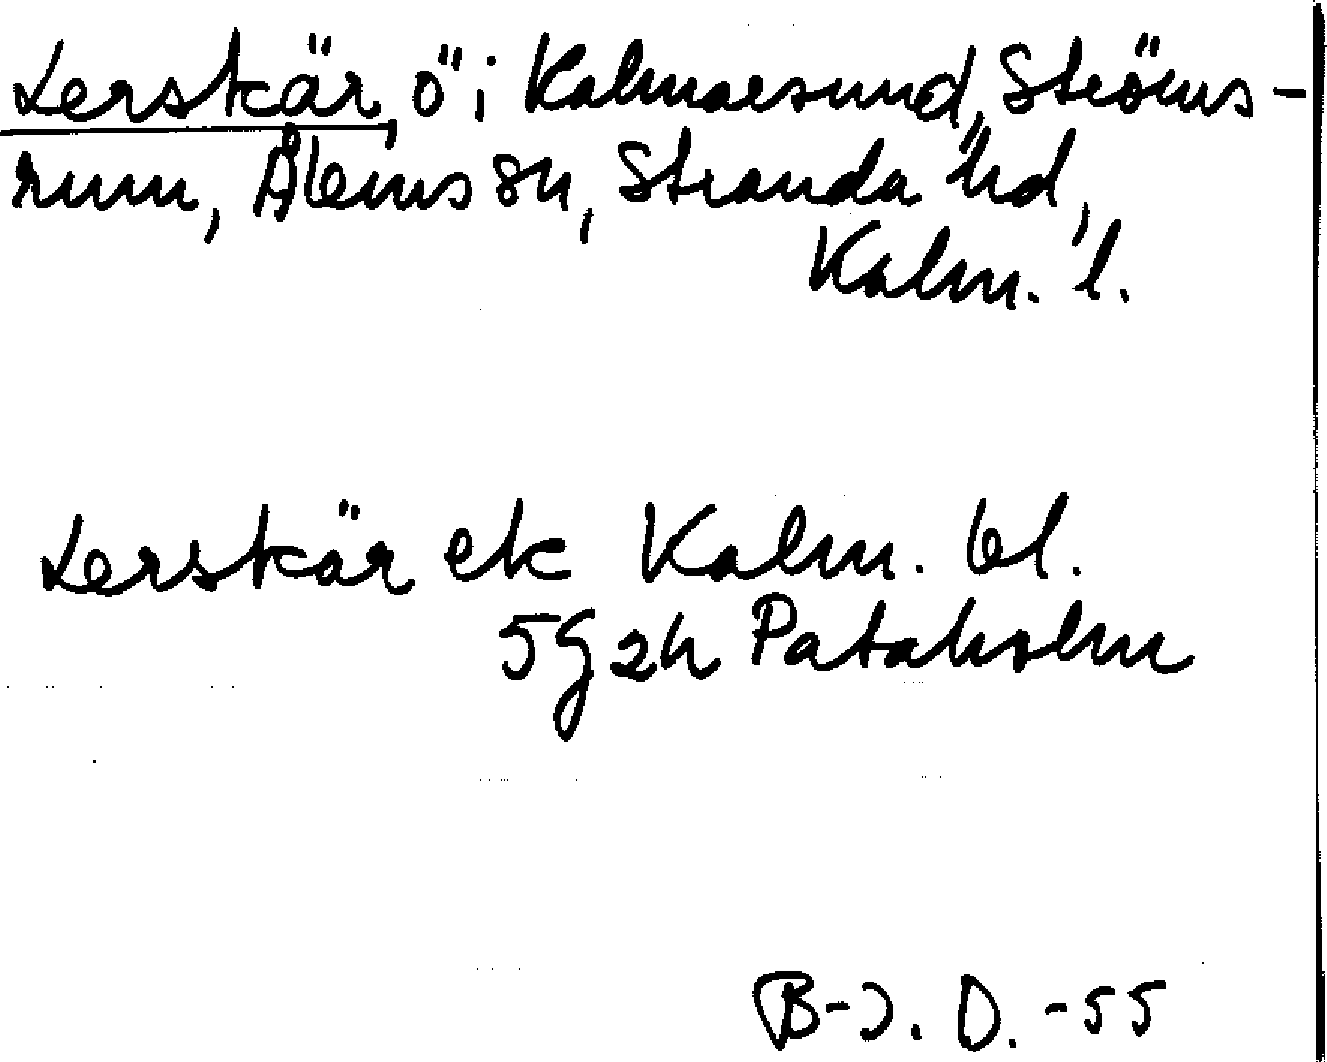 Lerskär, ö i Kalmarsund, Ströms-
rum, Ålems sn, Stranda hd,
Kalm. l.
Lerskär ek Kalm. bl.
5g2h Pataholm
B-J. D. -55